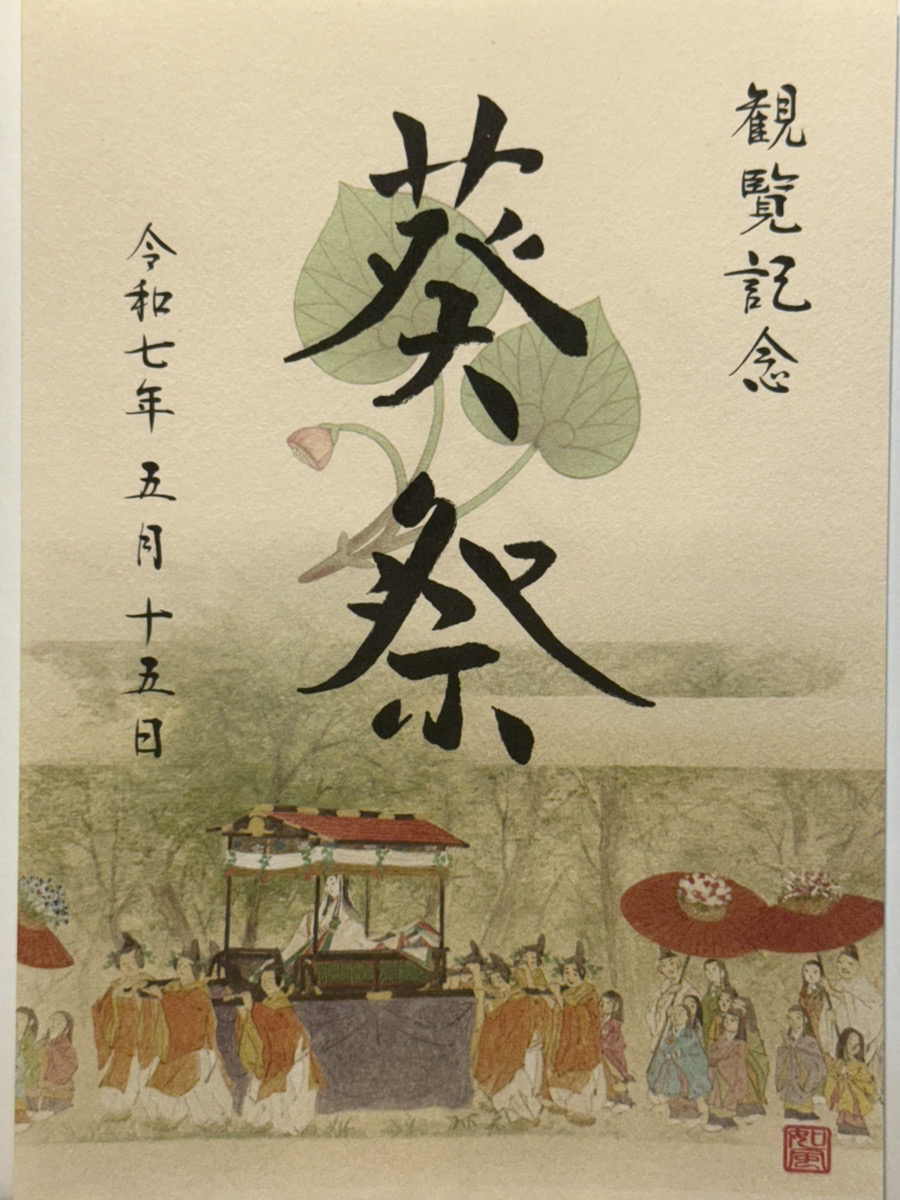 観覧記念
葵祭
令和七年 五月 十五日